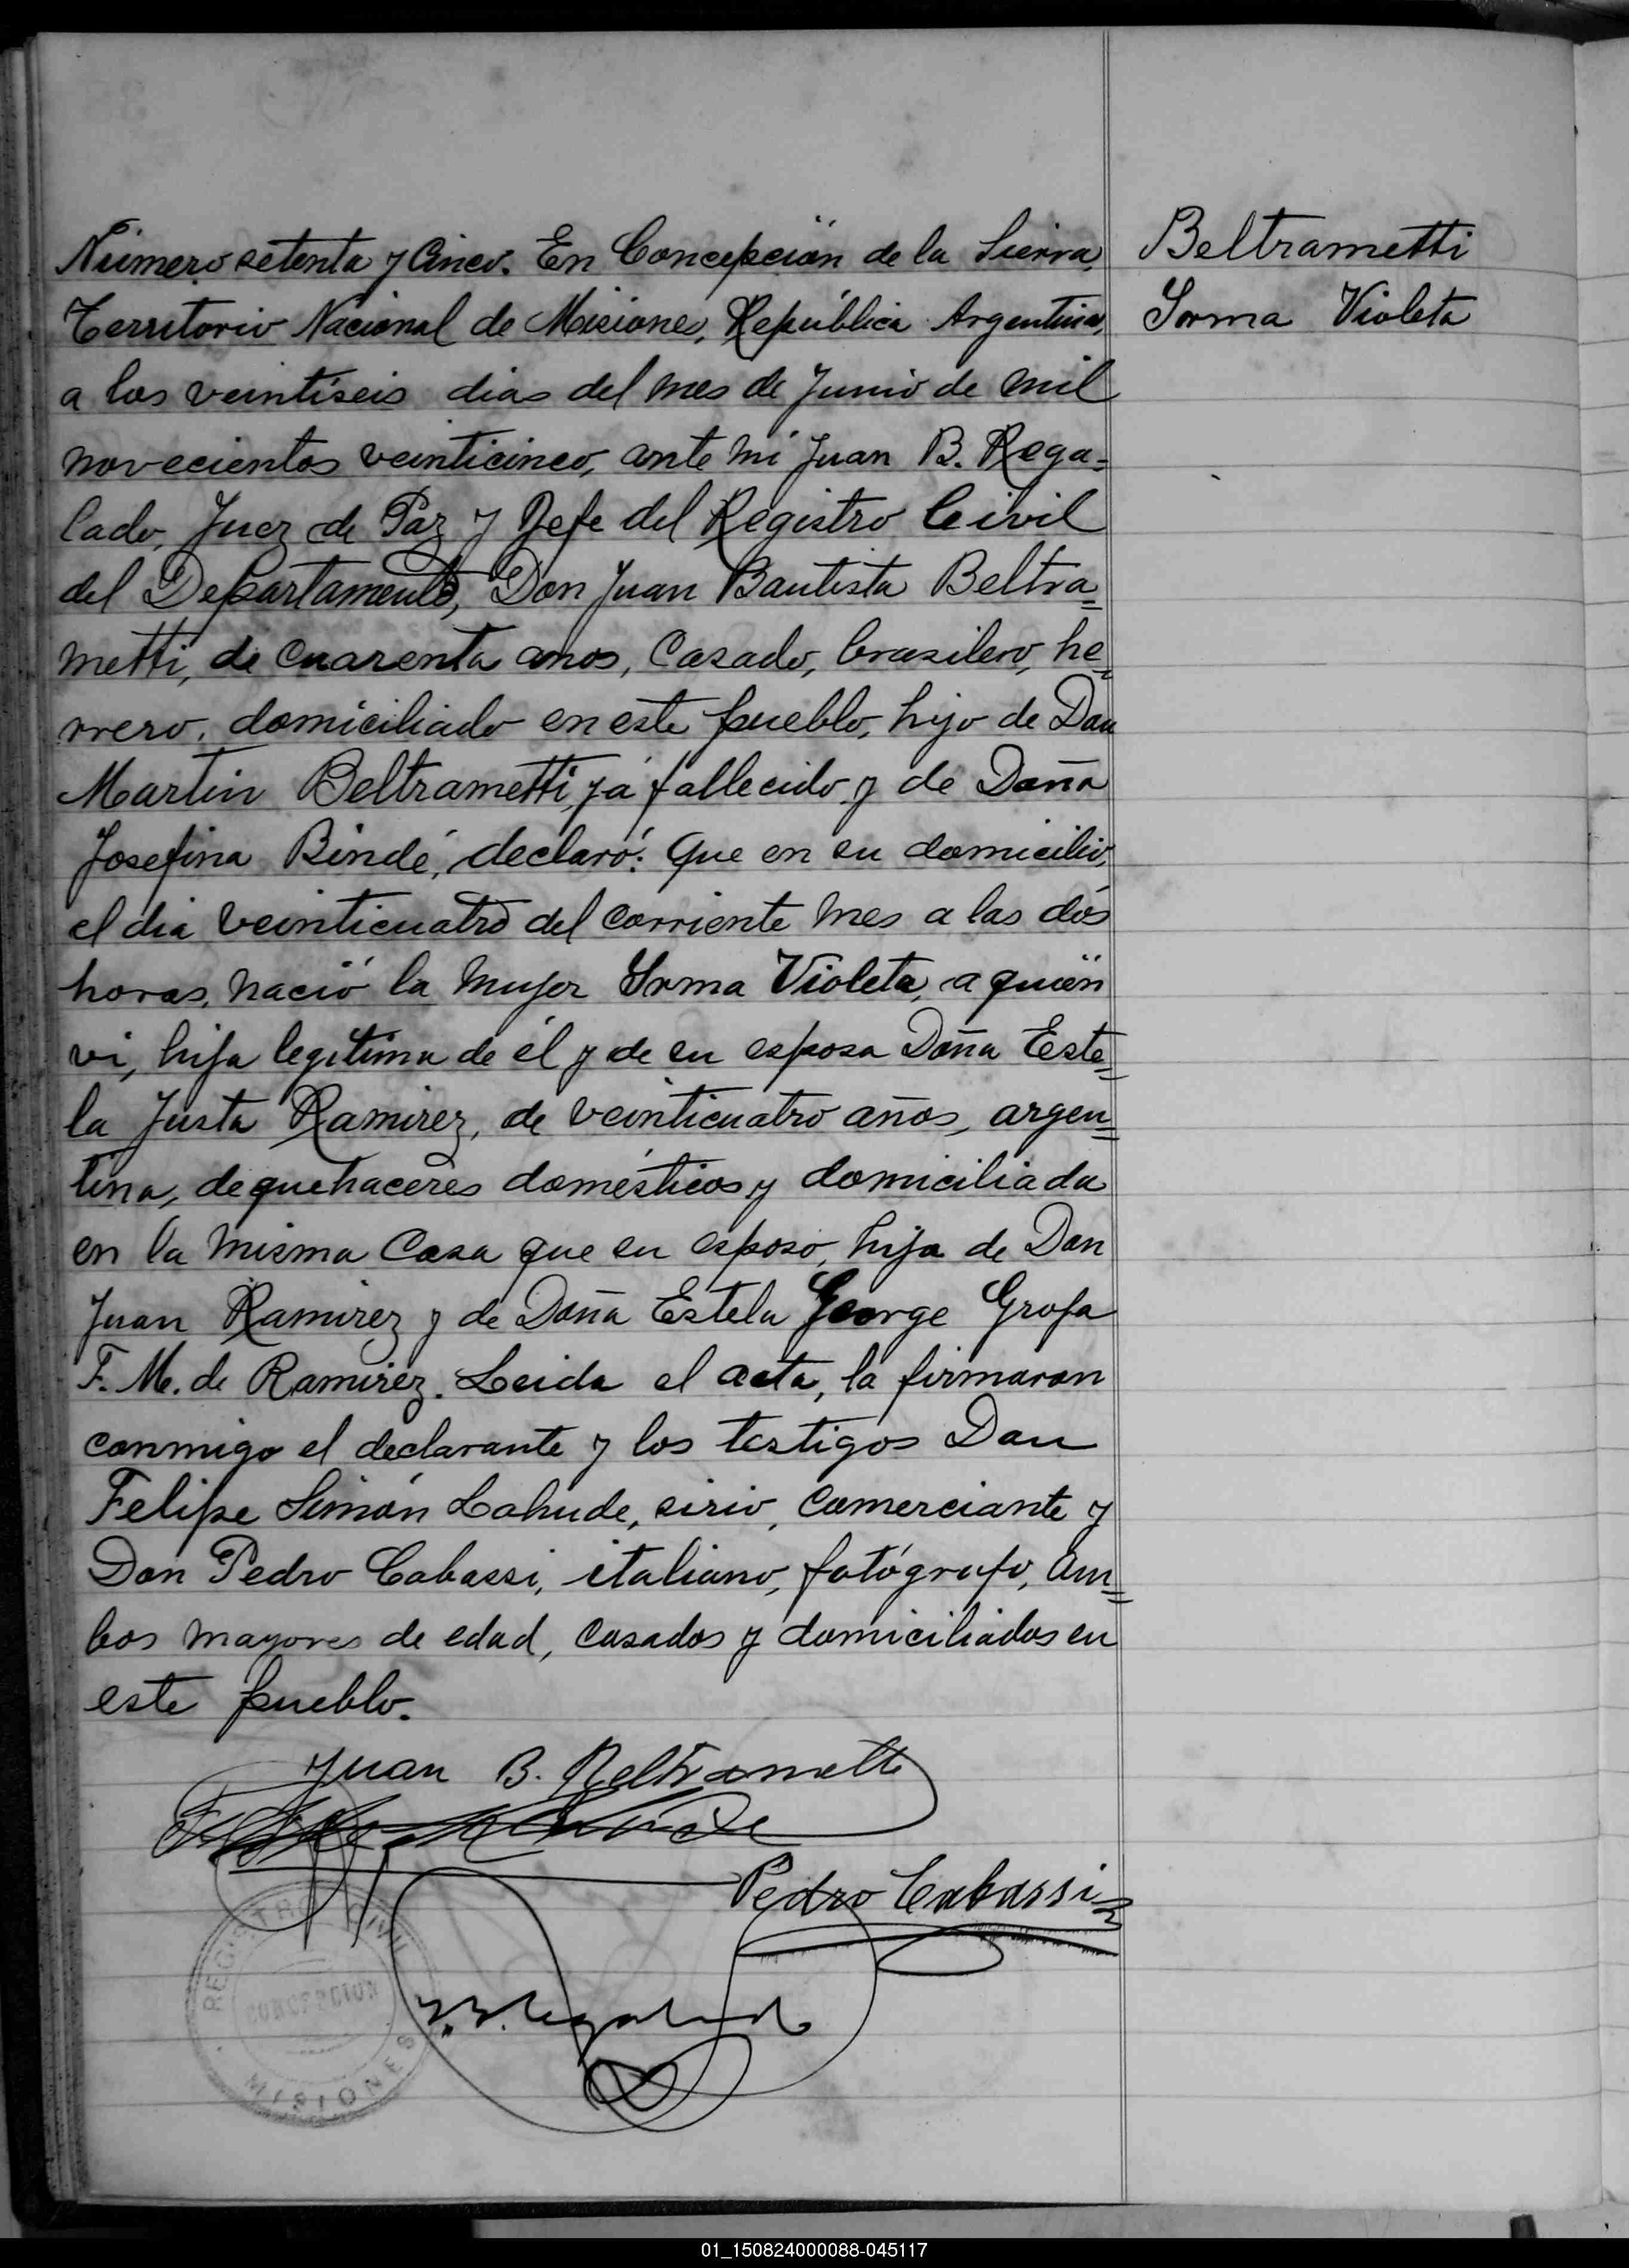 Número setenta y Cinco. En Concepción de la Sierra,
Territorio Nacional de Misiones, República Argentina,
a los veintiseis dias del mes de Junio de mil
novecientos veinticinco, ante mi Juan B. Rega=
lado, Juez de Paz y Jefe del Registro Civil
del Departamento, Don Juan Bautista Beltra=
metti, de cuarenta anos, Casado, brasilero, he=
rrero, domiciliado en este pueblo, hijo de Don
Martin Beltrametti, ya fallecido y de Doña
Josefina Bindé, declaró: Que en su domicilio,
el dia veinticuatro del corriente mes a las dos
horas, nació la mujer Irma Violeta, a quien
vi, hija legitima de él y de su esposa Doña Este=
la Justa Ramirez, de veinticuatro años, argen=
tina, de quehaceres domésticos y domiciliada
en la misma Casa que su esposo, hija de Don
Juan Ramirez y de Doña Estela George Grofa
F. M. de Ramirez. Leida el acta, la firmaron
conmigo el declarante y los testigos Don
Felipe Simón Lahude, sirio, Comerciante y
Don Pedro Cabassi, italiano, fotógrafo, am=
bos mayores de edad, casados y domiciliados en
este pueblo.
Beltrametti
Irma Violeta
Juan B. Beltrametti
Pedro Cabassi
J. B. Regalado
REGISTRO CIVIL
CONCEPCION
MISIONES
01_150824000088-045117